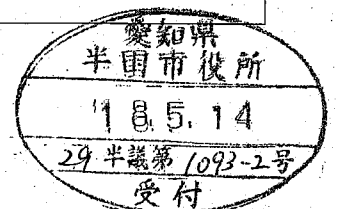 愛知県
半田市役所
'18.5.14
29半議第1093-2号
受付